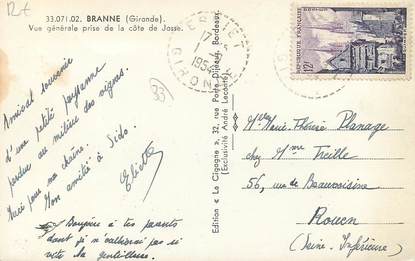 12f
33.071.02. BRANNE (Gironde).
Vue générale prise de la côte de Jasse.
17 - 5
1954
GIRONDE
RÉPUBLIQUE FRANÇAISE
12F
33
Amical souvenir
d'une petite paysanne
perdue au milieu des vignes.
Merci pour ma chaîne.
Mon amitié à Sido.
Bonjour à tes parents
dont je n'oublierai pas si
vite la gentillesse.
Edition « La Cigogne », 32, rue Porte Dijeaux, Bordeaux
(Exclusivité André Leconte)
Mlle Marie-Thérèse Planage
chez Mme Treille
56, rue de Beauvoisine
Rouen
(Seine-Inférieure)